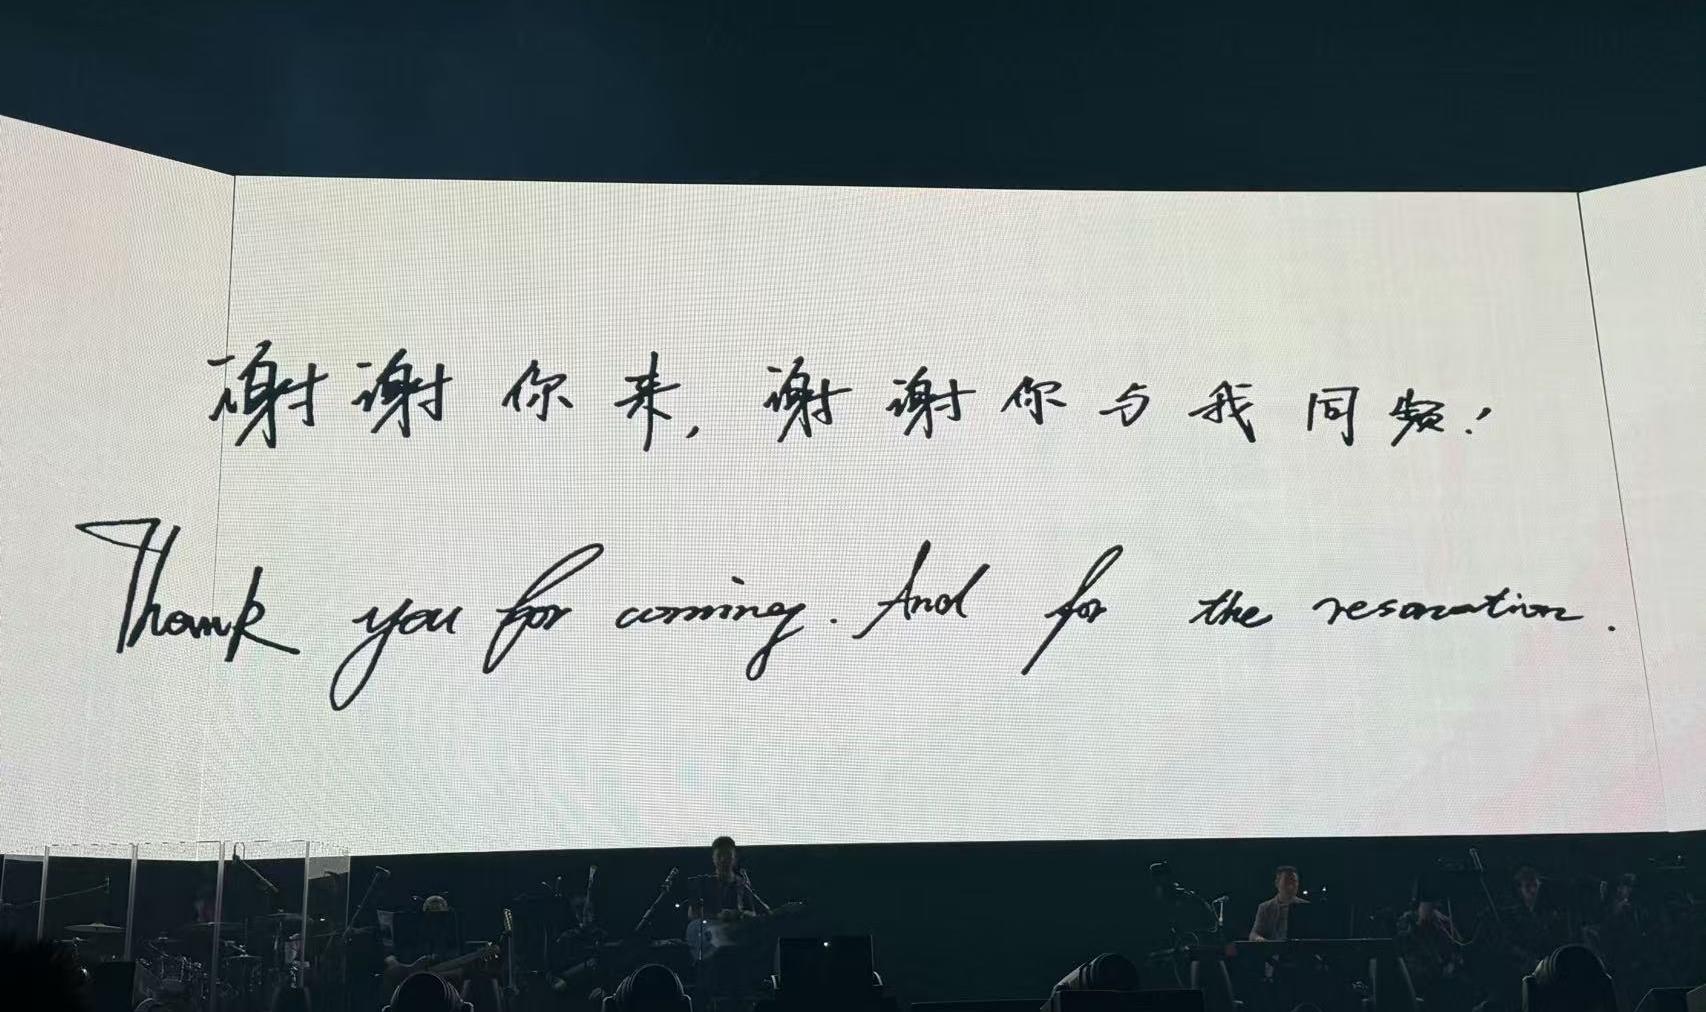 谢谢你来，谢谢你与我同频！
Thank you for coming. And for the resonation.